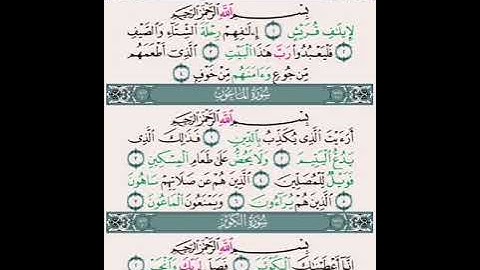 بِسْمِ اللَّهِ الرَّحْمَٰنِ الرَّحِيمِ
لِإِيلَٰفِ قُرَيْشٍ ١ إِۦلَٰفِهِمْ رِحْلَةَ ٱلشِّتَآءِ وَٱلصَّيْفِ
٢ فَلْيَعْبُدُوا۟ رَبَّ هَٰذَا ٱلْبَيْتِ ٣ ٱلَّذِىٓ أَطْعَمَهُم
مِّن جُوعٍ وَءَامَنَهُم مِّنْ خَوْفٍۭ ٤
سُورَةُ المَاعُونِ
بِسْمِ اللَّهِ الرَّحْمَٰنِ الرَّحِيمِ
أَرَءَيْتَ ٱلَّذِى يُكَذِّبُ بِٱلدِّينِ ١ فَذَٰلِكَ ٱلَّذِى
يَدُعُّ ٱلْيَتِيمَ ٢ وَلَا يَحُضُّ عَلَىٰ طَعَامِ ٱلْمِسْكِينِ ٣
فَوَيْلٌ لِّلْمُصَلِّينَ ٤ ٱلَّذِينَ هُمْ عَن صَلَاتِهِمْ سَاهُونَ
٥ ٱلَّذِينَ هُمْ يُرَآءُونَ ٦ وَيَمْنَعُونَ ٱلْمَاعُونَ ٧
سُورَةُ الكَوْثَرِ
بِسْمِ اللَّهِ الرَّحْمَٰنِ الرَّحِيمِ
إِنَّآ أَعْطَيْنَٰكَ ٱلْكَوْثَرَ ١ فَصَلِّ لِرَبِّكَ وَٱنْحَرْ ٢